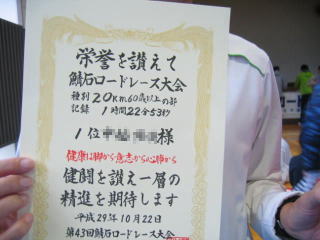 栄誉を讃えて
鯖石ロードレース大会
種別 20km60歳以上の部
記録 1時間22分53秒
1位 様
健康は脚から意志から心肺から
健闘を讃え一層の
精進を期待します
平成29年10月22日
第43回鯖石ロードレース大会